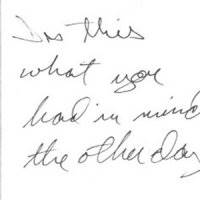 Is this
what you
had in mind
the other day